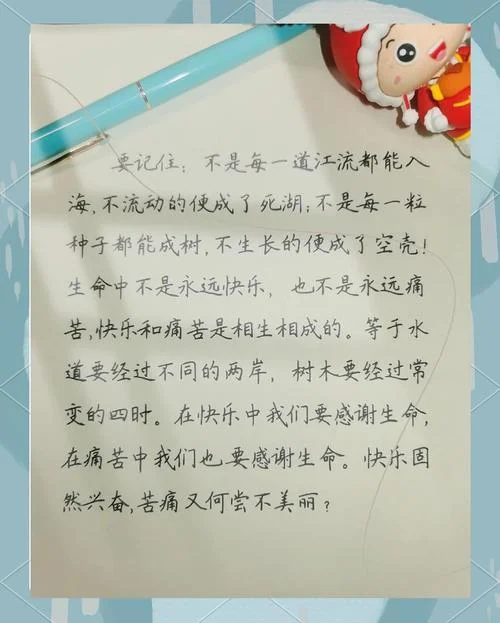 要记住：不是每一道江流都能入
海,不流动的便成了死湖;不是每一粒
种子都能成树,不生长的便成了空壳!
生命中不是永远快乐，也不是永远痛
苦,快乐和痛苦是相生相成的。等于水
道要经过不同的两岸，树木要经过常
变的四时。在快乐中我们要感谢生命,
在痛苦中我们也要感谢生命。快乐固
然兴奋,苦痛又何尝不美丽？